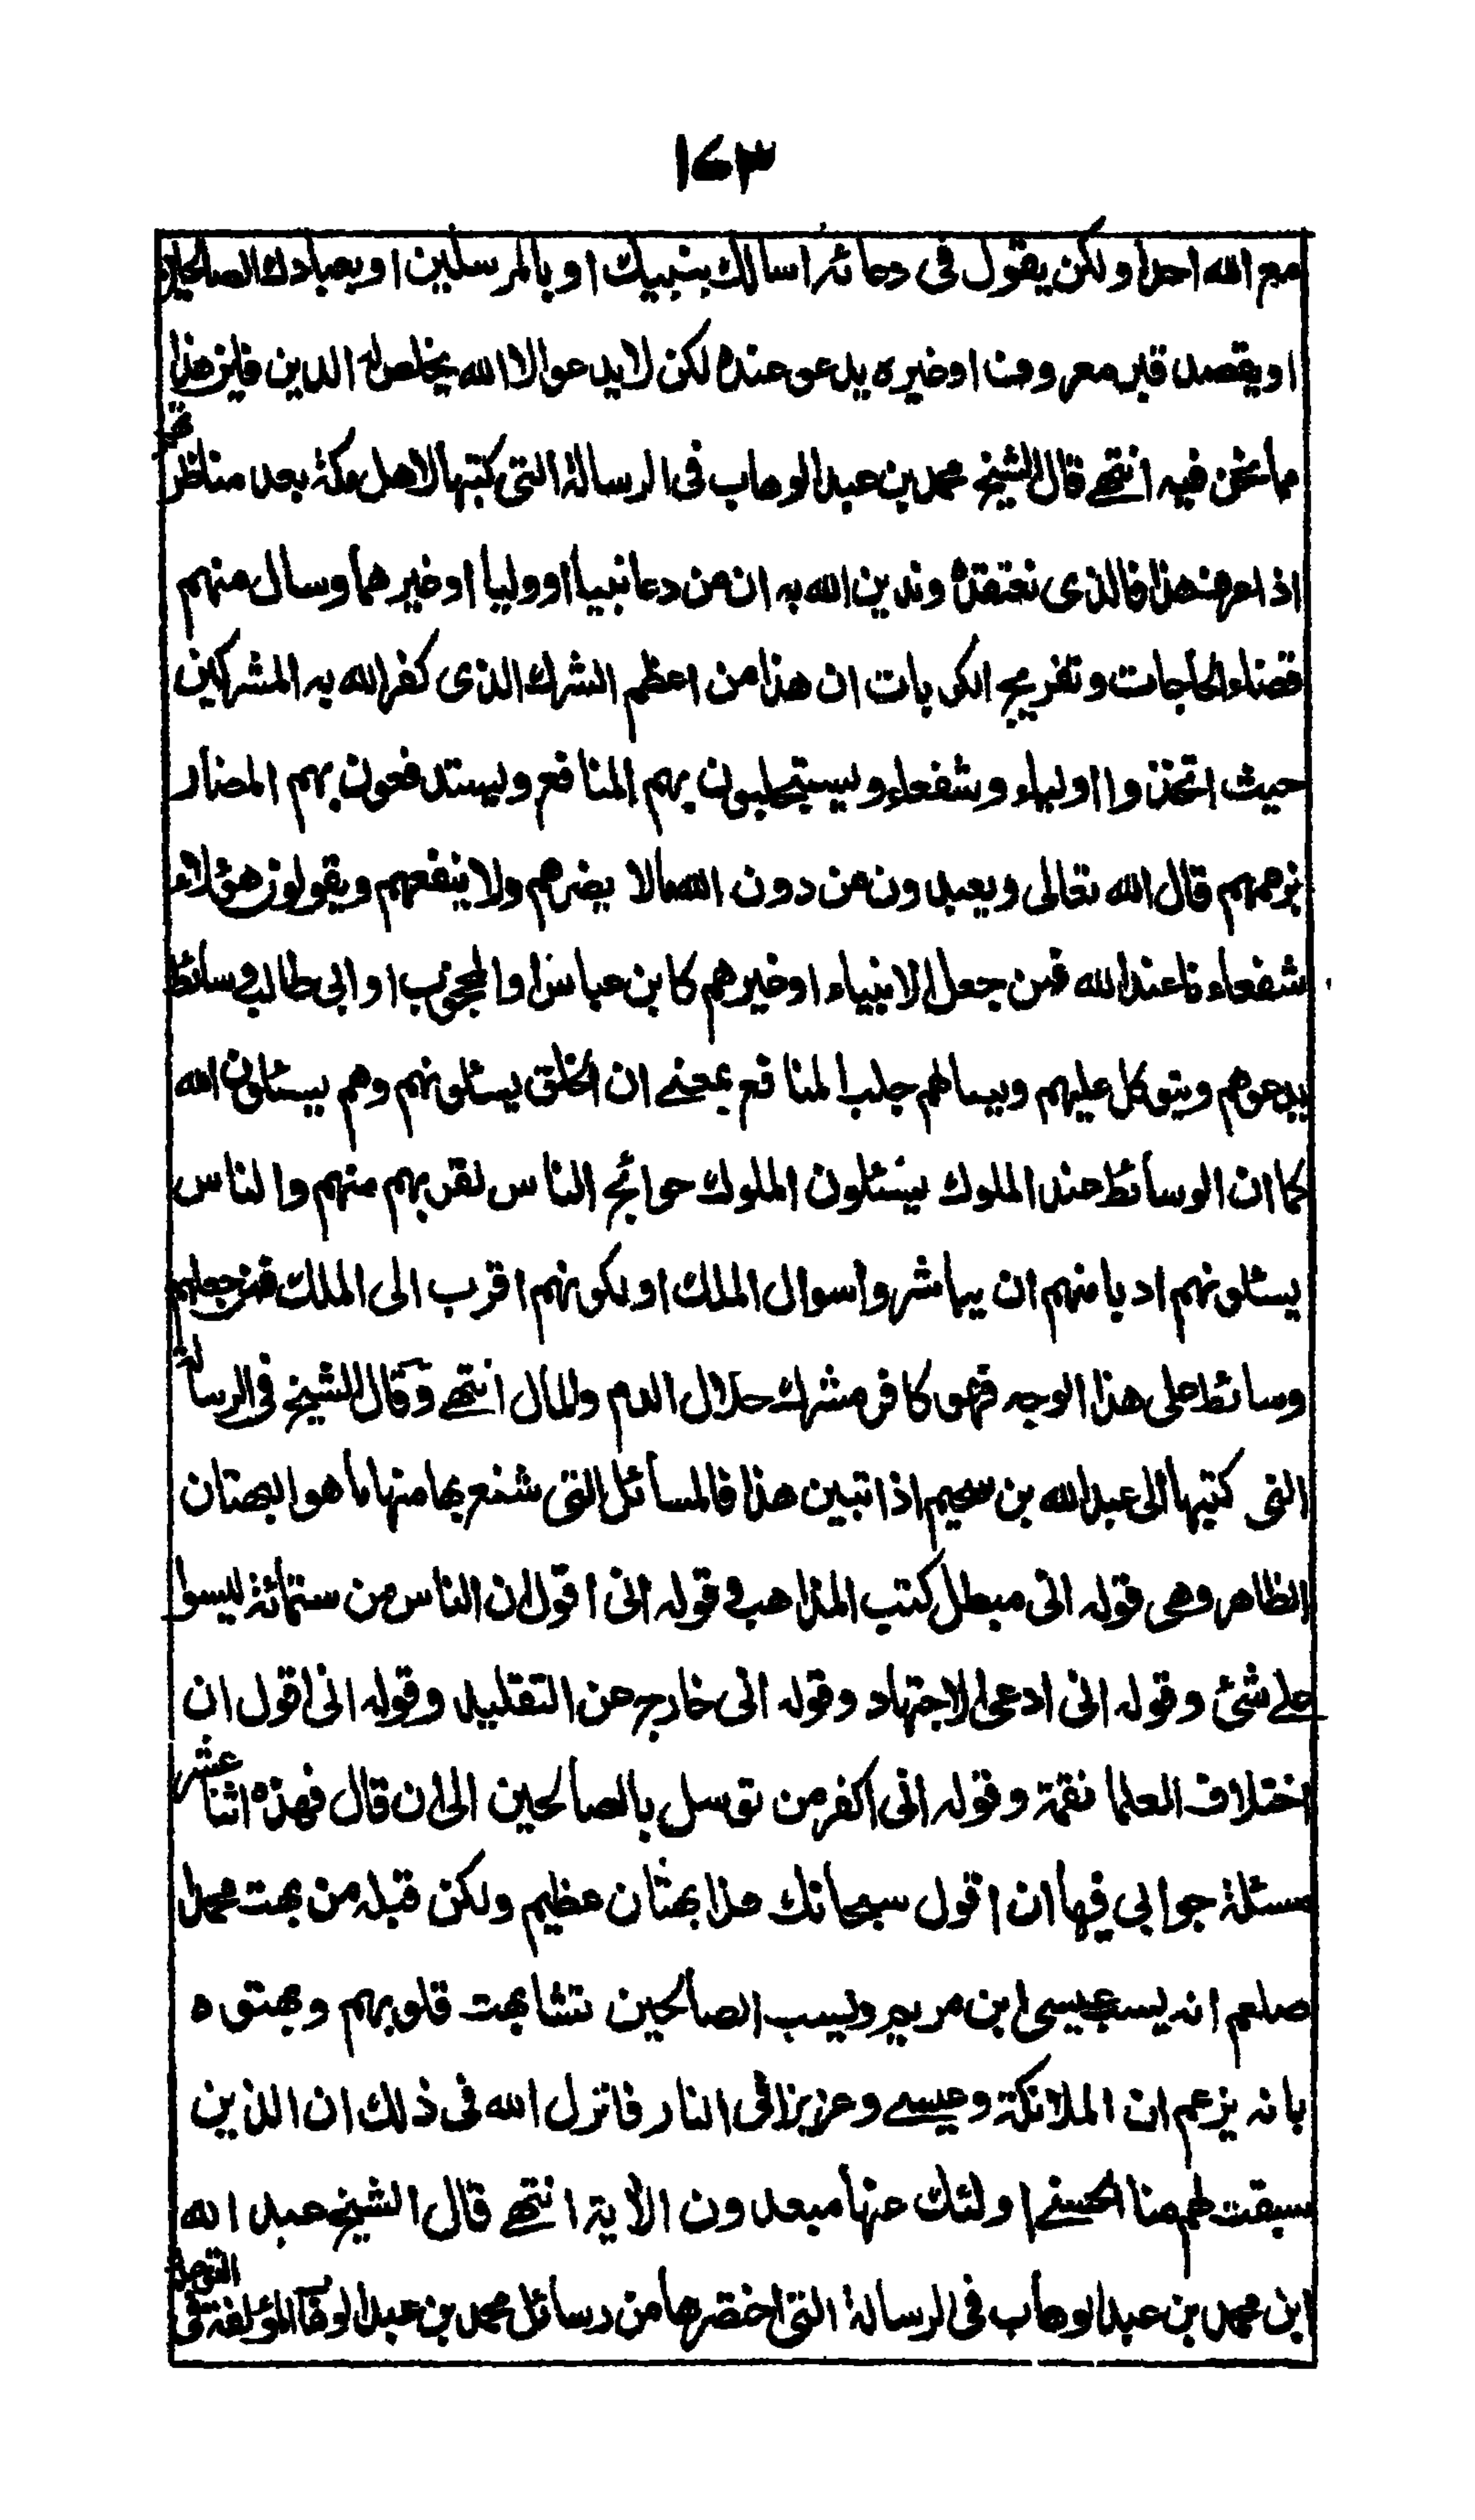 ١٧٣
مع الله احدا ولكن يقول في دعائه اسالك بنبيك او بالمرسلين او بعبادك الصالحين
او يقصد قبر معروف او غيره يدعو عنده لكن لا يدعو الا الله يخلص له الدين فاين هذا
مما نحن فيه انتهى قال الشيخ محمد بن عبد الوهاب في الرسالة التي كتبها لاهل مكة بعد مناظرتهم
اذا عرف هذا فالذي نعتقده وندين الله به ان من دعا نبيا او وليا او غيرهما وسال منهم
قضاء الحاجات وتفريج الكربات ان هذا من اعظم الشرك الذي كفر الله به المشركين
حيث اتخذوا اولياء وشفعاء ويستجلبون بهم المنافع ويستدفعون بهم المضار
بزعمهم قال الله تعالى ويعبدون من دون الله مالا يضرهم ولا ينفعهم ويقولون هؤلاء
شفعاءنا عند الله فمن جعل الانبياء او غيرهم كابن عباس او المحجوب او ابي طالب وسائط
يدعوهم ويتوكل عليهم ويسالهم جلب المنافع بمعنى ان الخلق يسئلونهم وهم يسئلون الله
كما ان الوسائط عند الملوك يسئلون الملوك حوائج الناس لقربهم منهم والناس
يسئلونهم ادبا منهم ان يباشروا سوال الملك او لكونهم اقرب الى الملك فمن جعلهم
وسائط على هذا الوجه فهو كافر مشرك حلال الدم والمال انتهى وقال الشيخ في الرسالة
التي كتبها الى عبد الله بن سحيم اذا تبين هذا فالمسائل التي شنع بها منها ما هو البهتان
الظاهر وهي قوله اني مبطل كتب المذاهب وقوله اني اقول ان الناس من ستمائة ليسوا
على شئ وقوله اني ادعى الاجتهاد وقوله اني خارج عن التقليد وقوله اني اقول ان
اختلاف العلما نقمة وقوله اني اكفر من توسل بالصالحين الى ان قال فهذه اثنا عشر
مسئلة جوابي فيها ان اقول سبحانك هذا بهتان عظيم ولكن قبله من بهت محمدا
صلعم انه يسب عيسى ابن مريم ويسب الصالحين تشابهت قلوبهم وبهتوه
بانه يزعم ان الملائكة وعيسى وعزيرا في النار فانزل الله في ذلك ان الذين
سبقت لهم منا الحسنى اولئك عنها مبعدون الاية انتهى قال الشيخ عبد الله
ابن محمد بن عبد الوهاب في الرسالة التي اختصرها من رسائل محمد بن عبد الوهاب المؤلفة في التوحيد